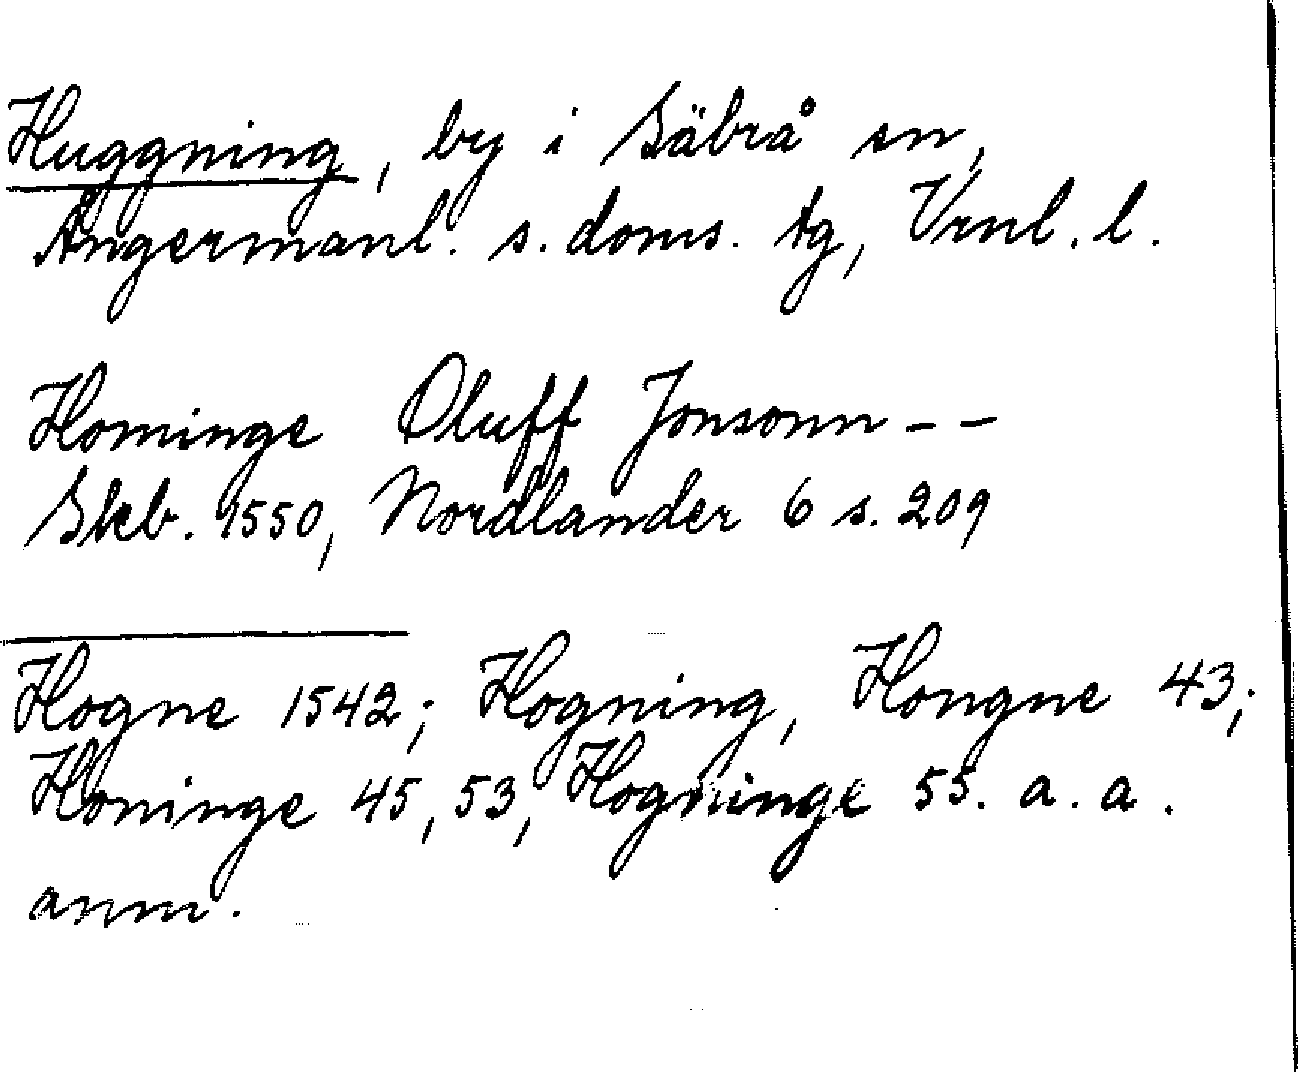 Huggning, by i Säbrå sn,
Ångermanl. s. doms. tg, Vrnl. l.
Hominge Oluff Jonsonn - -
Skb. 1550, Nordlander 6 s. 209
Hogne 1542; Hogning, Hongne 43;
Honinge 45, 53, Hogninge 55. a. a.
anm.